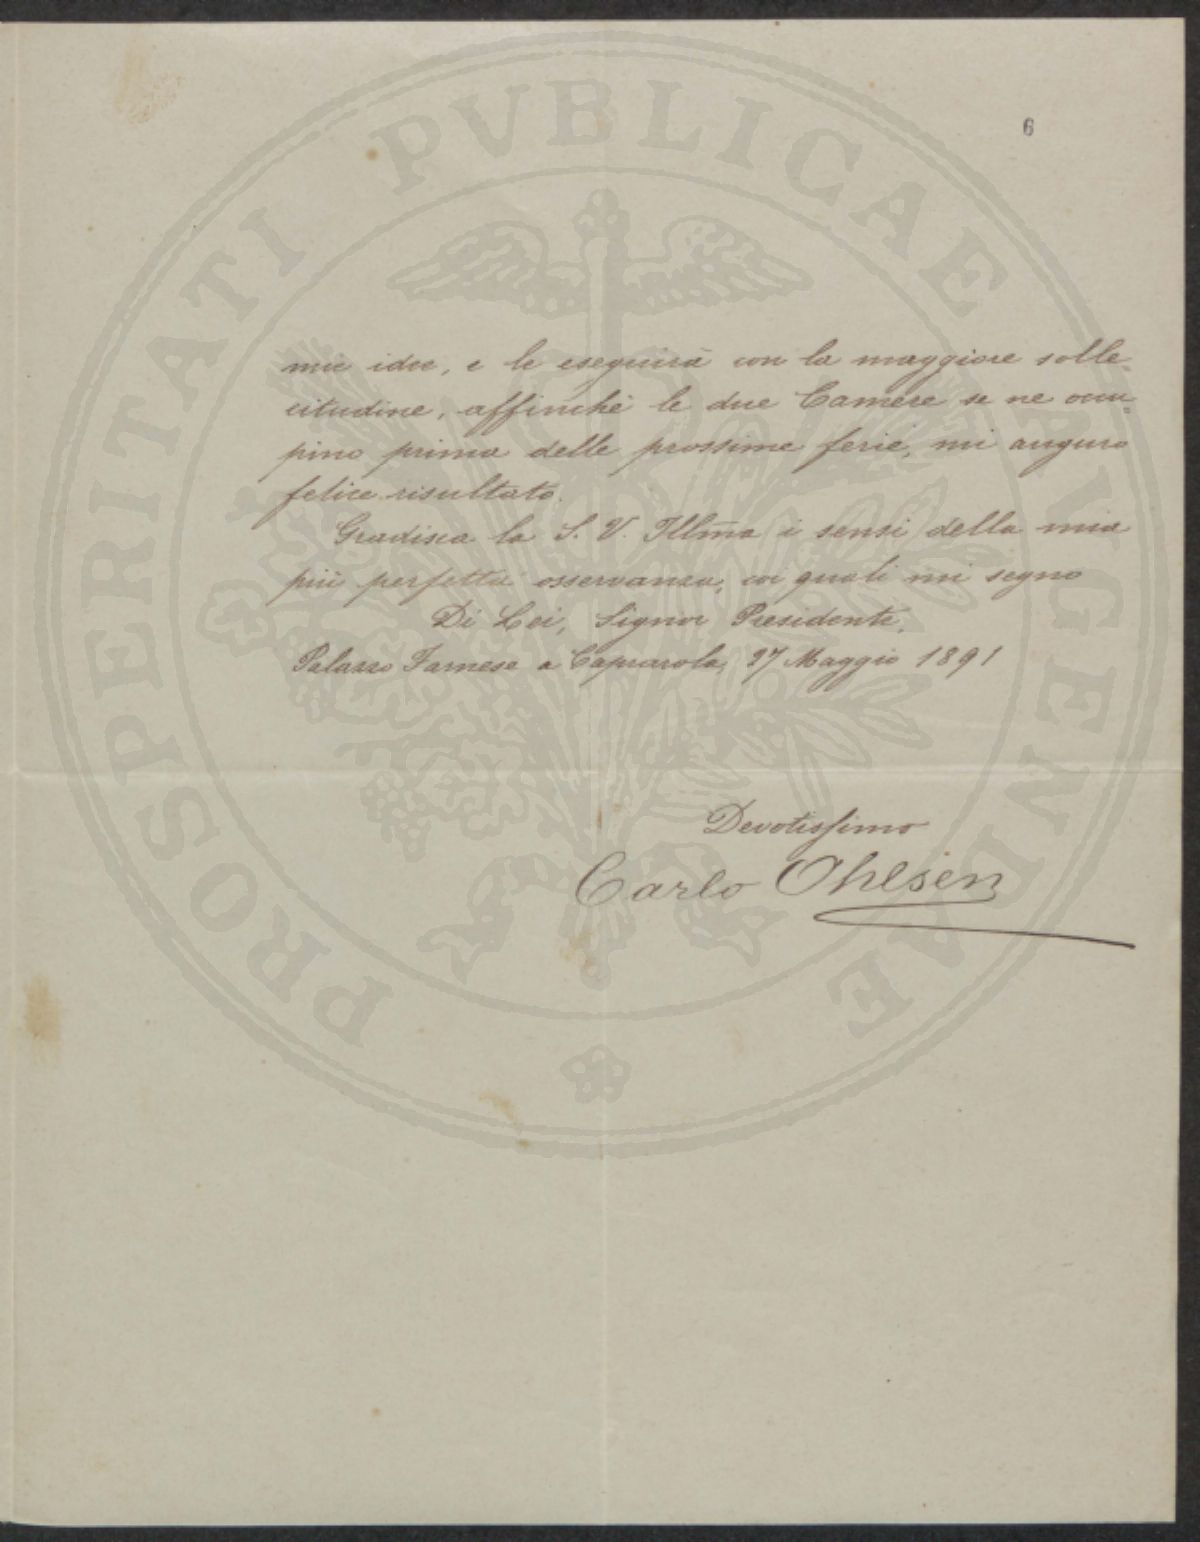 6
mie idee, e le eseguirà con la maggiore solle=
citudine, affinchè le due Camere se ne occu=
pino prima delle prossime ferie, mi auguro
felice risultato.
Gradisca la S. V. Illm̃a i sensi della mia
più perfetta osservanza, coi quali mi segno
Di Lei, Signor Presidente,
Palazzo Farnese a Caprarola, 27 Maggio 1891
Devotissimo
Carlo Ohlsen
PROSPERITATI PVBLICAE AVGENDAE